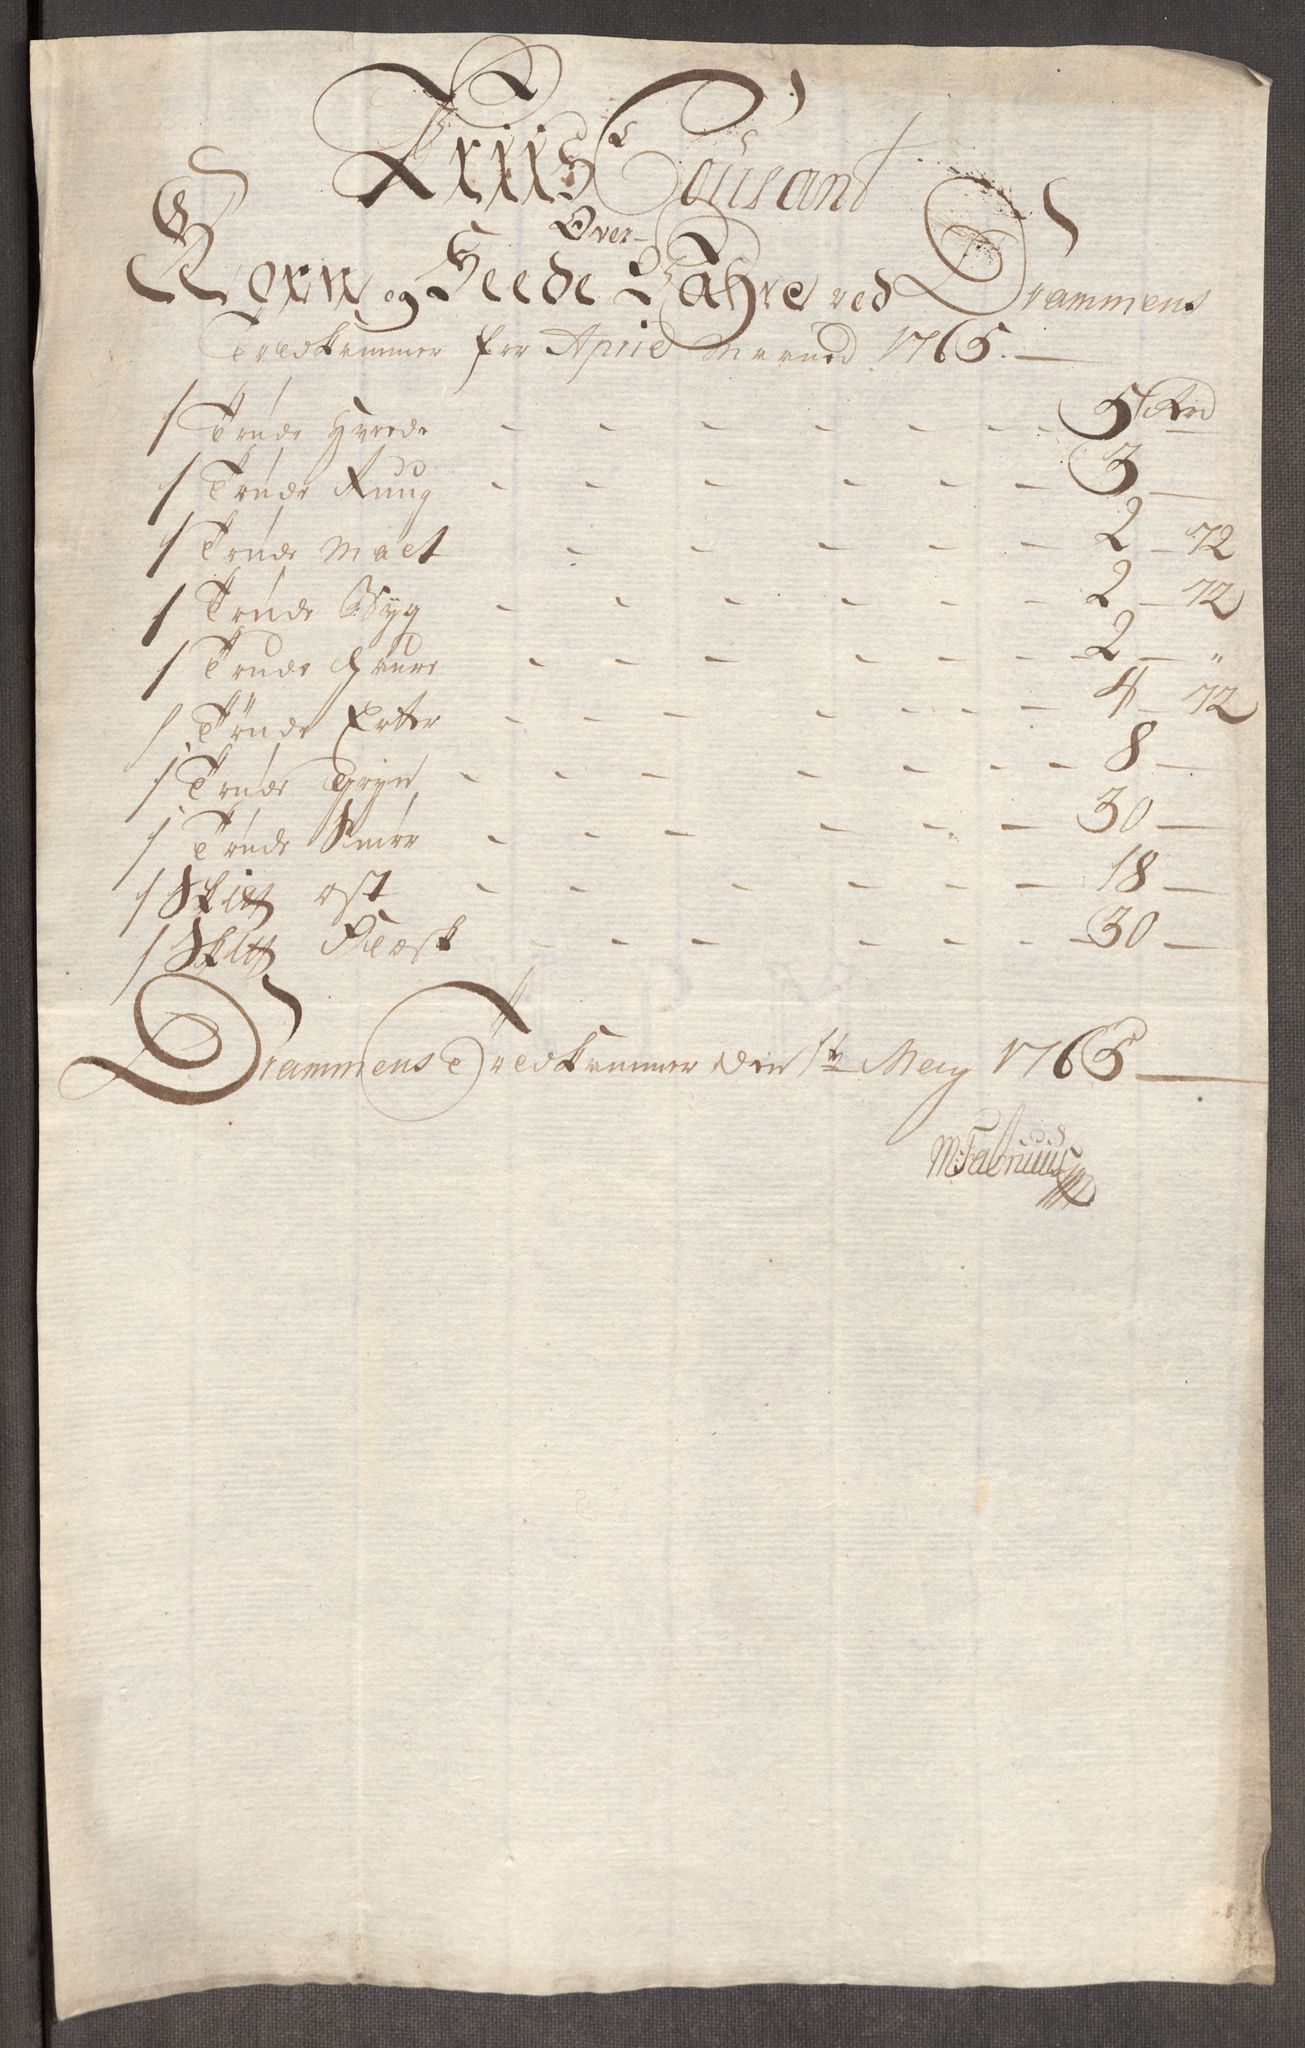 Priis Courant
Over
Korn og Feede Vahre ved Drammens
Toldkammer for April Maaned 1765.
1 Tønde Hvede - - - - - - - 5 Rd
1 Tønde Ruug - - - - - - 3 —
1 Tønde Malt - - - - - 2 - 72
1 Tønde Byg - - - - - - 2 - 72
1 Tønde Haure - - - - - - - 2 - "
1 Tønde Erter - - - - - - - 4 - 72
1 Tønde Gryn - - - - - - - 8 —
1 Tønde Smør - - - - - - 30 —
1 Sk℔ ost - - - - - - 18 —
1 Sk℔ Flesk - - - - - - - 30 —
Drammens Toldkammer den 1te May 1765
MFabritius